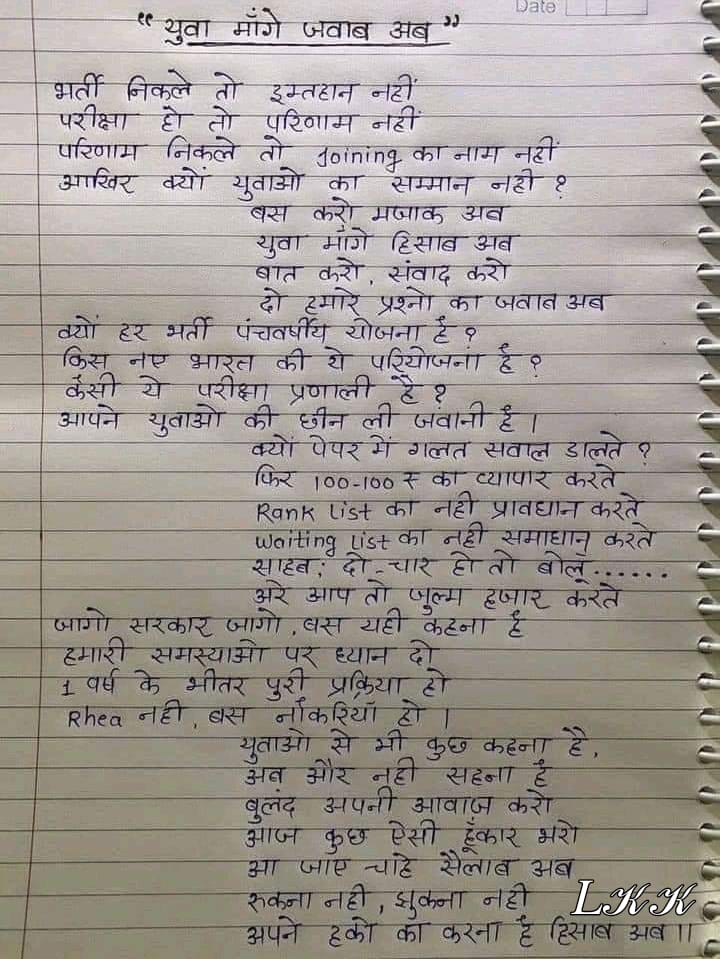 Date
“युवा माँगे जवाब अब”
भर्ती निकले तो इम्तहान नहीं
परीक्षा हो तो परिणाम नहीं
परिणाम निकले तो Joining का नाम नहीं
आखिर क्यों युवाओ का सम्मान नही ?
बस करो मजाक अब
युवा माँगे हिसाब अब
बात करो, संवाद करो
दो हमारे प्रश्नो का जवाब अब
क्यों हर भर्ती पंचवर्षीय योजना है ?
किस नए भारत की ये परियोजना है ?
कैसी ये परीक्षा प्रणाली है ?
आपने युवाओ की छीन ली जवानी है।
क्यों पेपर में गलत सवाल डालते ?
फिर 100-100 ₹ का व्यापार करते
Rank List का नही प्रावधान करते
Waiting List का नही समाधान करते
साहब; दो-चार हो तो बोलूँ......
अरे आप तो जुल्म हजार करते
जागो सरकार जागो, बस यही कहना है
हमारी समस्याओ पर ध्यान दो
1 वर्ष के भीतर पुरी प्रक्रिया हो
Rhea नही, बस नौकरियाँ हो।
युवाओ से भी कुछ कहना है,
अब और नही सहना है
बुलंद अपनी आवाज करो
आज कुछ ऐसी हूँकार भरो
आ जाए चाहे सैलाब अब
रुकना नही, झुकना नही
अपने हको का करना है हिसाब अब।।
LKK